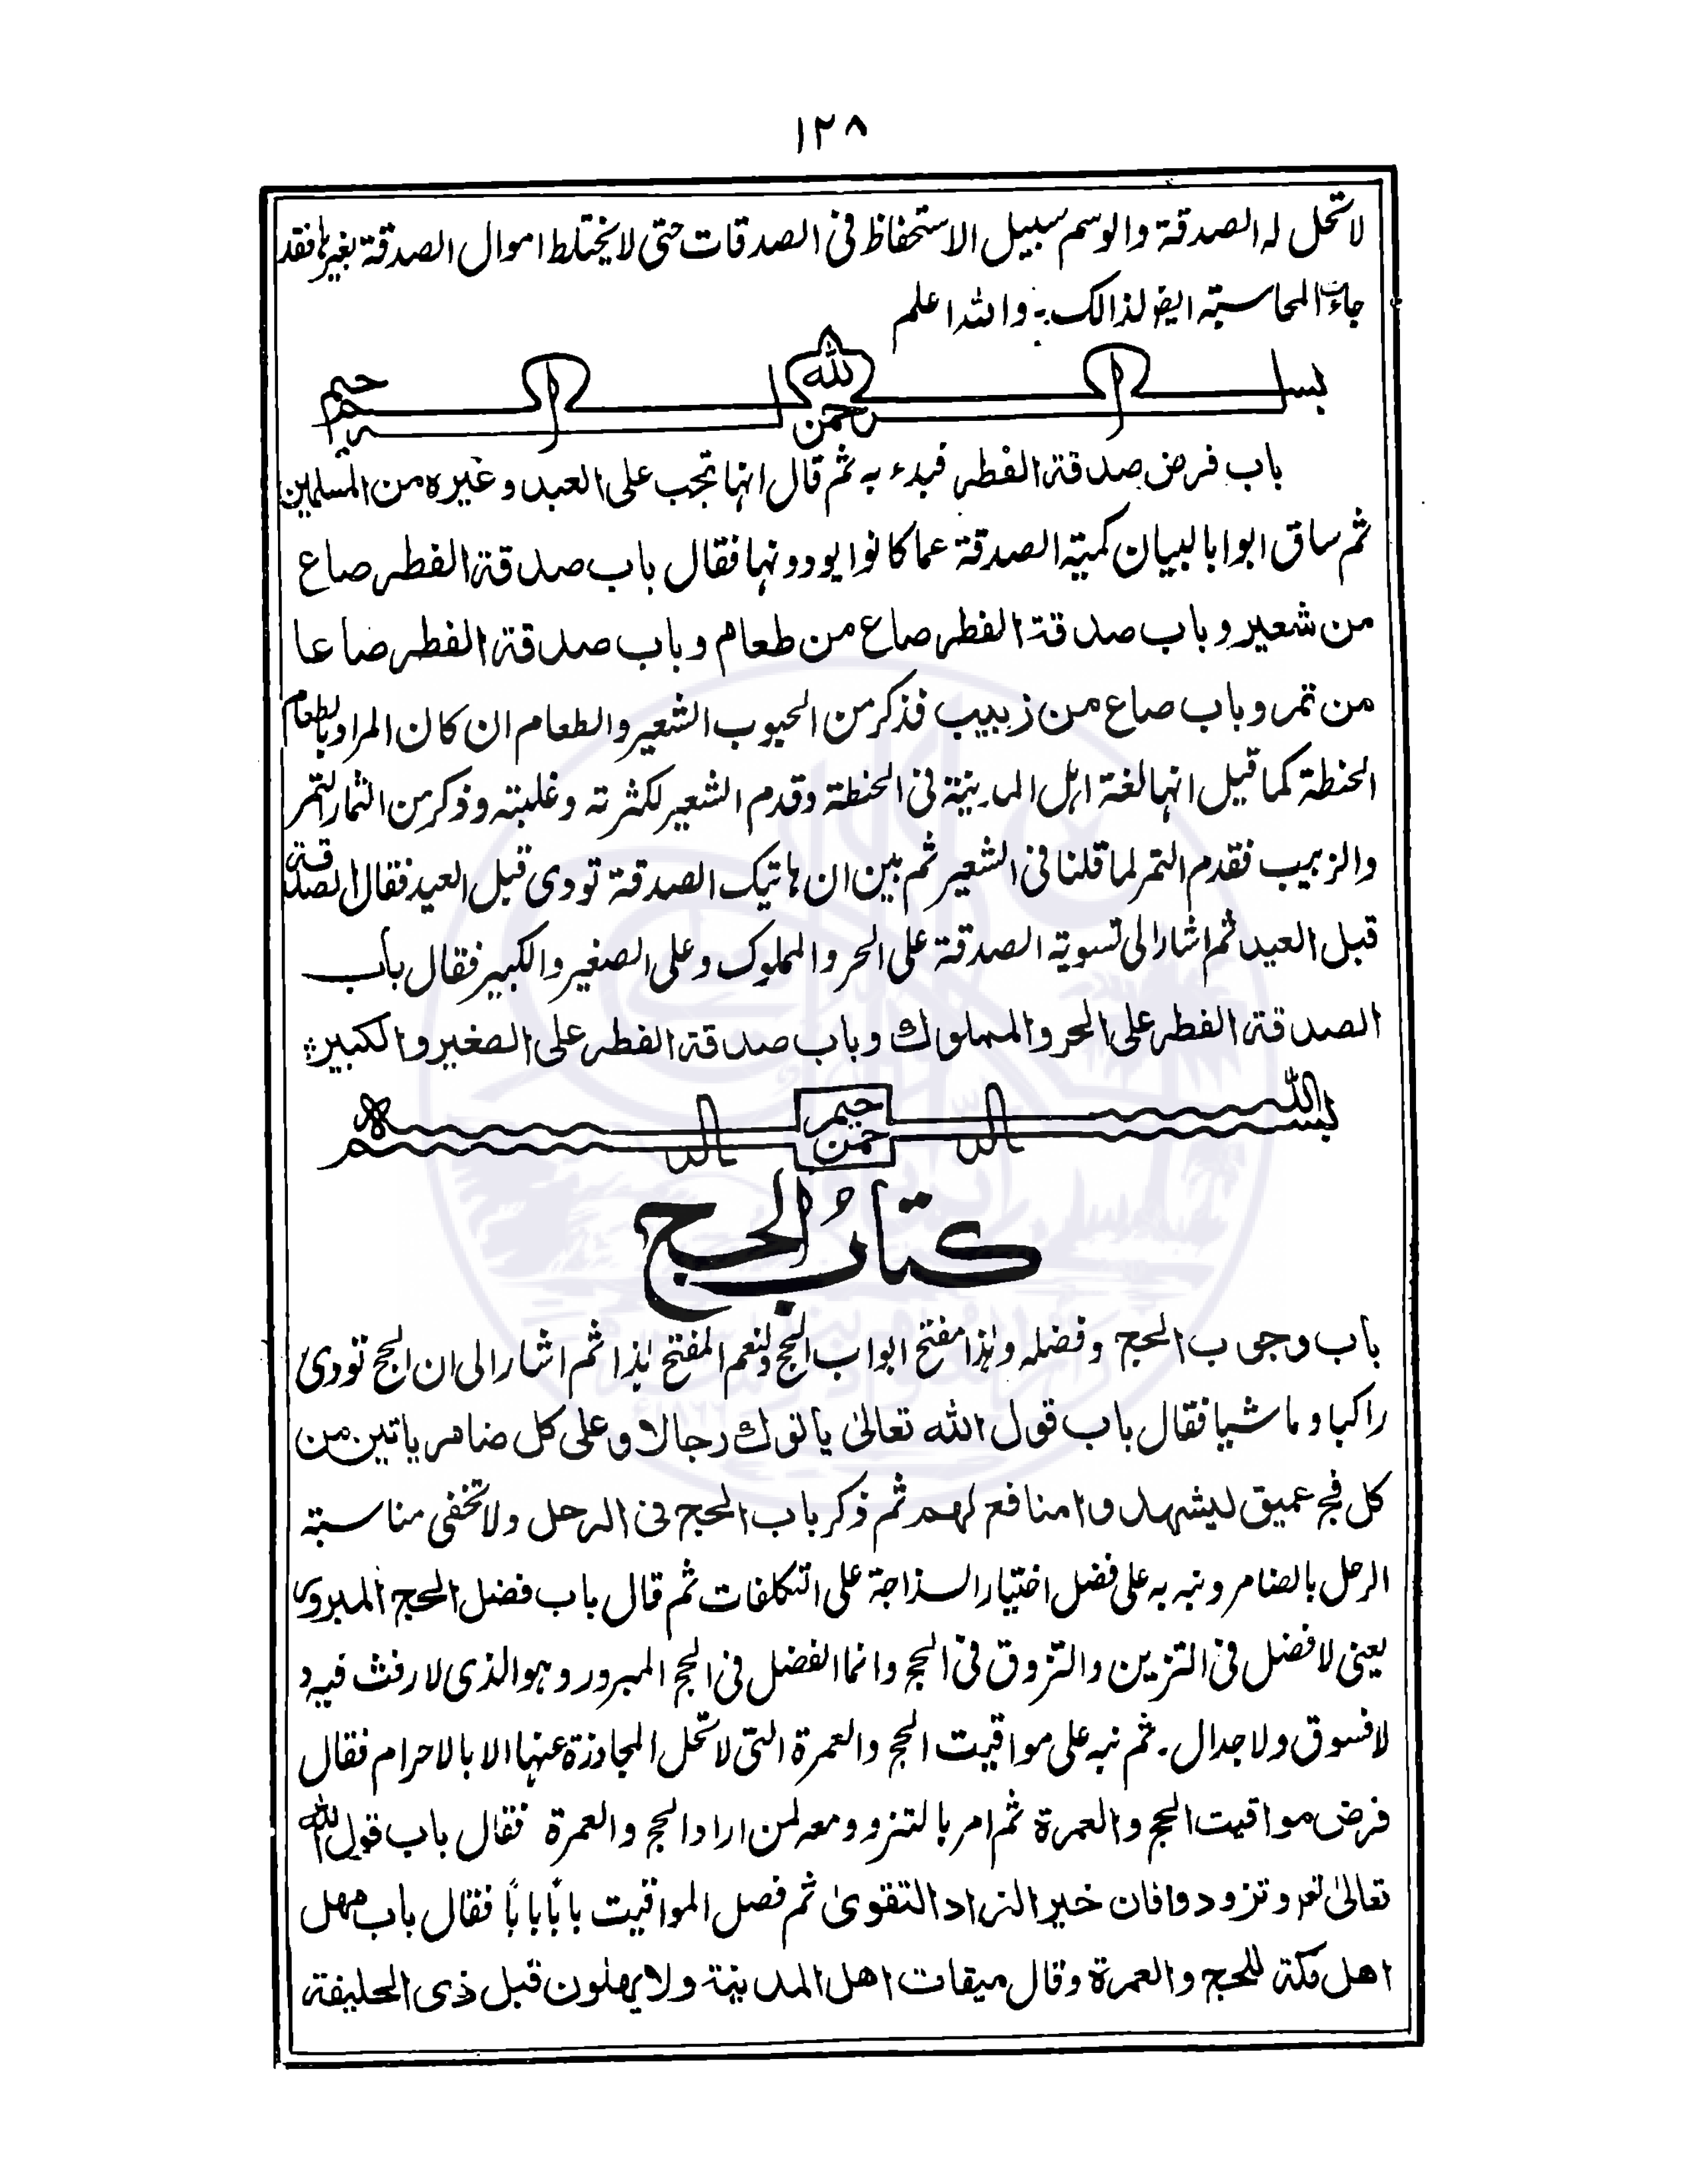 ١٢٨
لا تحل له الصدقة والوسم سبيل الاستحفاظ فى الصدقات حتى لا يختلط اموال الصدقة بغيرها فقد
جاءت المحاسبته ايضو لذالك ÷ والله اعلم
بسم الله الرحمن الرحيم
باب فرض صدقة الفطر فبدء به ثم قال انها تجب على العبد وغيره من المسلمين
ثم ساق ابوابا لبيان كميته الصدقة عما كانوا يودونها فقال باب صدقة الفطر صاع
من شعير وباب صدقة الفطر صاع من طعام وباب صدقة الفطر صاعا
من تمر وباب صاع من زبيب فذكر من الحبوب الشعير والطعام ان كان المراد بالطعام
الحنطة كما قيل انها لغة اهل المدينة فى الحنطة وقدم الشعير لكثرته وغلبته وذكر من الثمار التمر
والزبيب فقدم التمر لما قلنا فى الشعير ثم بين ان هاتيك الصدقة تودى قبل العيد فقال الصدقة
قبل العيد ثم اشار الى تسويته الصدقة على الحر والمملوك وعلى الصغير والكبير فقال باب
الصدقة الفطر على الحر والمملوك وباب صدقة الفطر على الصغير والكبير÷
بسم الله الرحمن الرحيم
كتاب الحج
باب وجوب الحج وفضله وهذا مفتح ابواب الحج ولنعم المفتح هذا ثم اشار الى ان الحج تودى
راكبا وماشيا فقال باب قول الله تعالىٰ ياتوك رجالا وعلى كل ضامر ياتين من
كل فج عميق ليشهدوا منافع لهم ثم ذكر باب الحج فى الرحل ولا تخفى مناسبته
الرحل بالضامر ونبه به على فضل اختيار السذاجة على التكلفات ثم قال باب فضل الحج المبرور
يعنى لا فضل فى التزين والتزوق فى الحج وانما الفضل فى الحج المبرور وهو الذى لا رفث فيه و
لا فسوق ولا جدال ۔ ثم نبه على مواقيت الحج والعمرة التى لا تحل المجاوزة عنها الا بالاحرام فقال
فرض مواقيت الحج والعمرة ثم امر بالتزود ومعه لمن اراد الحج والعمرة فقال باب قول الله
تعالىٰ وتزودوا فان خير الزاد التقوىٰ ثم فصل المواقيت بابًا بابًا فقال باب مهل
اهل مكة للحج والعمرة وقال ميقات اهل المدينة ولا يهلون قبل ذى الحليفة